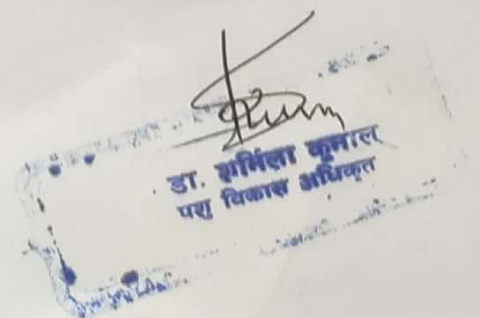 डा. शर्मिला कुमाल
पशु विकास अधिकृत